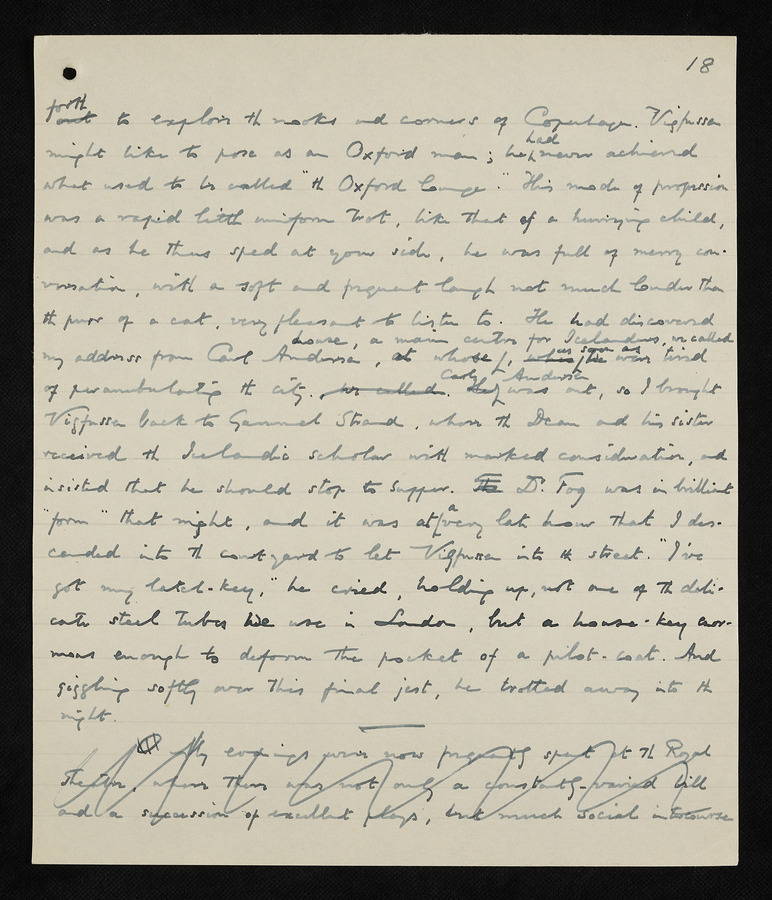 18
forth
out to explore the nooks and corners of Copenhagen. Vigfusson
had
might like to pose as an Oxford man; he never achieved
what used to be called "the Oxford lounge." His mode of progression
was a rapid little uniform trot, like that of a hurrying child,
and as he thus sped at your side, he was full of merry con-
versation, with a soft and frequent laugh not much louder than
the purr of a cat, very pleasant to listen to. He had discovered
house, a main centre for Icelanders, we called
my address from Carl Andersen, at whose, when / as soon as he were tired
of perambulating the city. we called. He Carl Andersen was out, so I brought
Vigfusson back to Gammel Strand, where the Dean and his sister
received the Icelandic scholar with marked consideration, and
insisted that he should stop to supper. The Dr. Fog was in brilliant
"form" that night, and it was at a very late hour that I des-
cended into the courtyard to let Vigfusson into the street. "I've
got my latch-key," he cried, holding up, not one of the deli-
cate steel tubes we use in London, but a house-key enor-
mous enough to deform the pocket of a pilot-coat. And
giggling softly over this final jest, he trotted away into the
night.
My evenings were now frequently spent at the Royal
Theatre, where there was not only a constantly-varied bill
and a succession of excellent plays, but much social intercourse